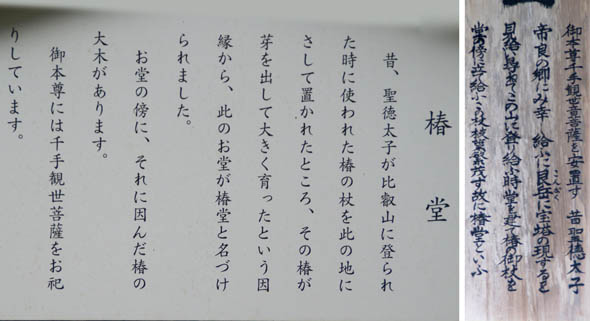 椿堂
昔、聖徳太子が比叡山に登られ
た時に使われた椿の杖を此の地に
さして置かれたところ、その椿が
芽を出して大きく育ったという因
縁から、此のお堂が椿堂と名づけ
られました。
お堂の傍に、それに因んだ椿の
大木があります。
御本尊には千手観世菩薩をお祀
りしています。
御本尊千手観世音菩薩を安置す 昔聖徳太子
帝良の郷にみ幸 給ふに艮岳に宝塔の現するを
こんがく
この山に登り給ふ時堂を建て椿の御杖を
堂の傍に立て給ふ
繁茂す故に椿堂といふ